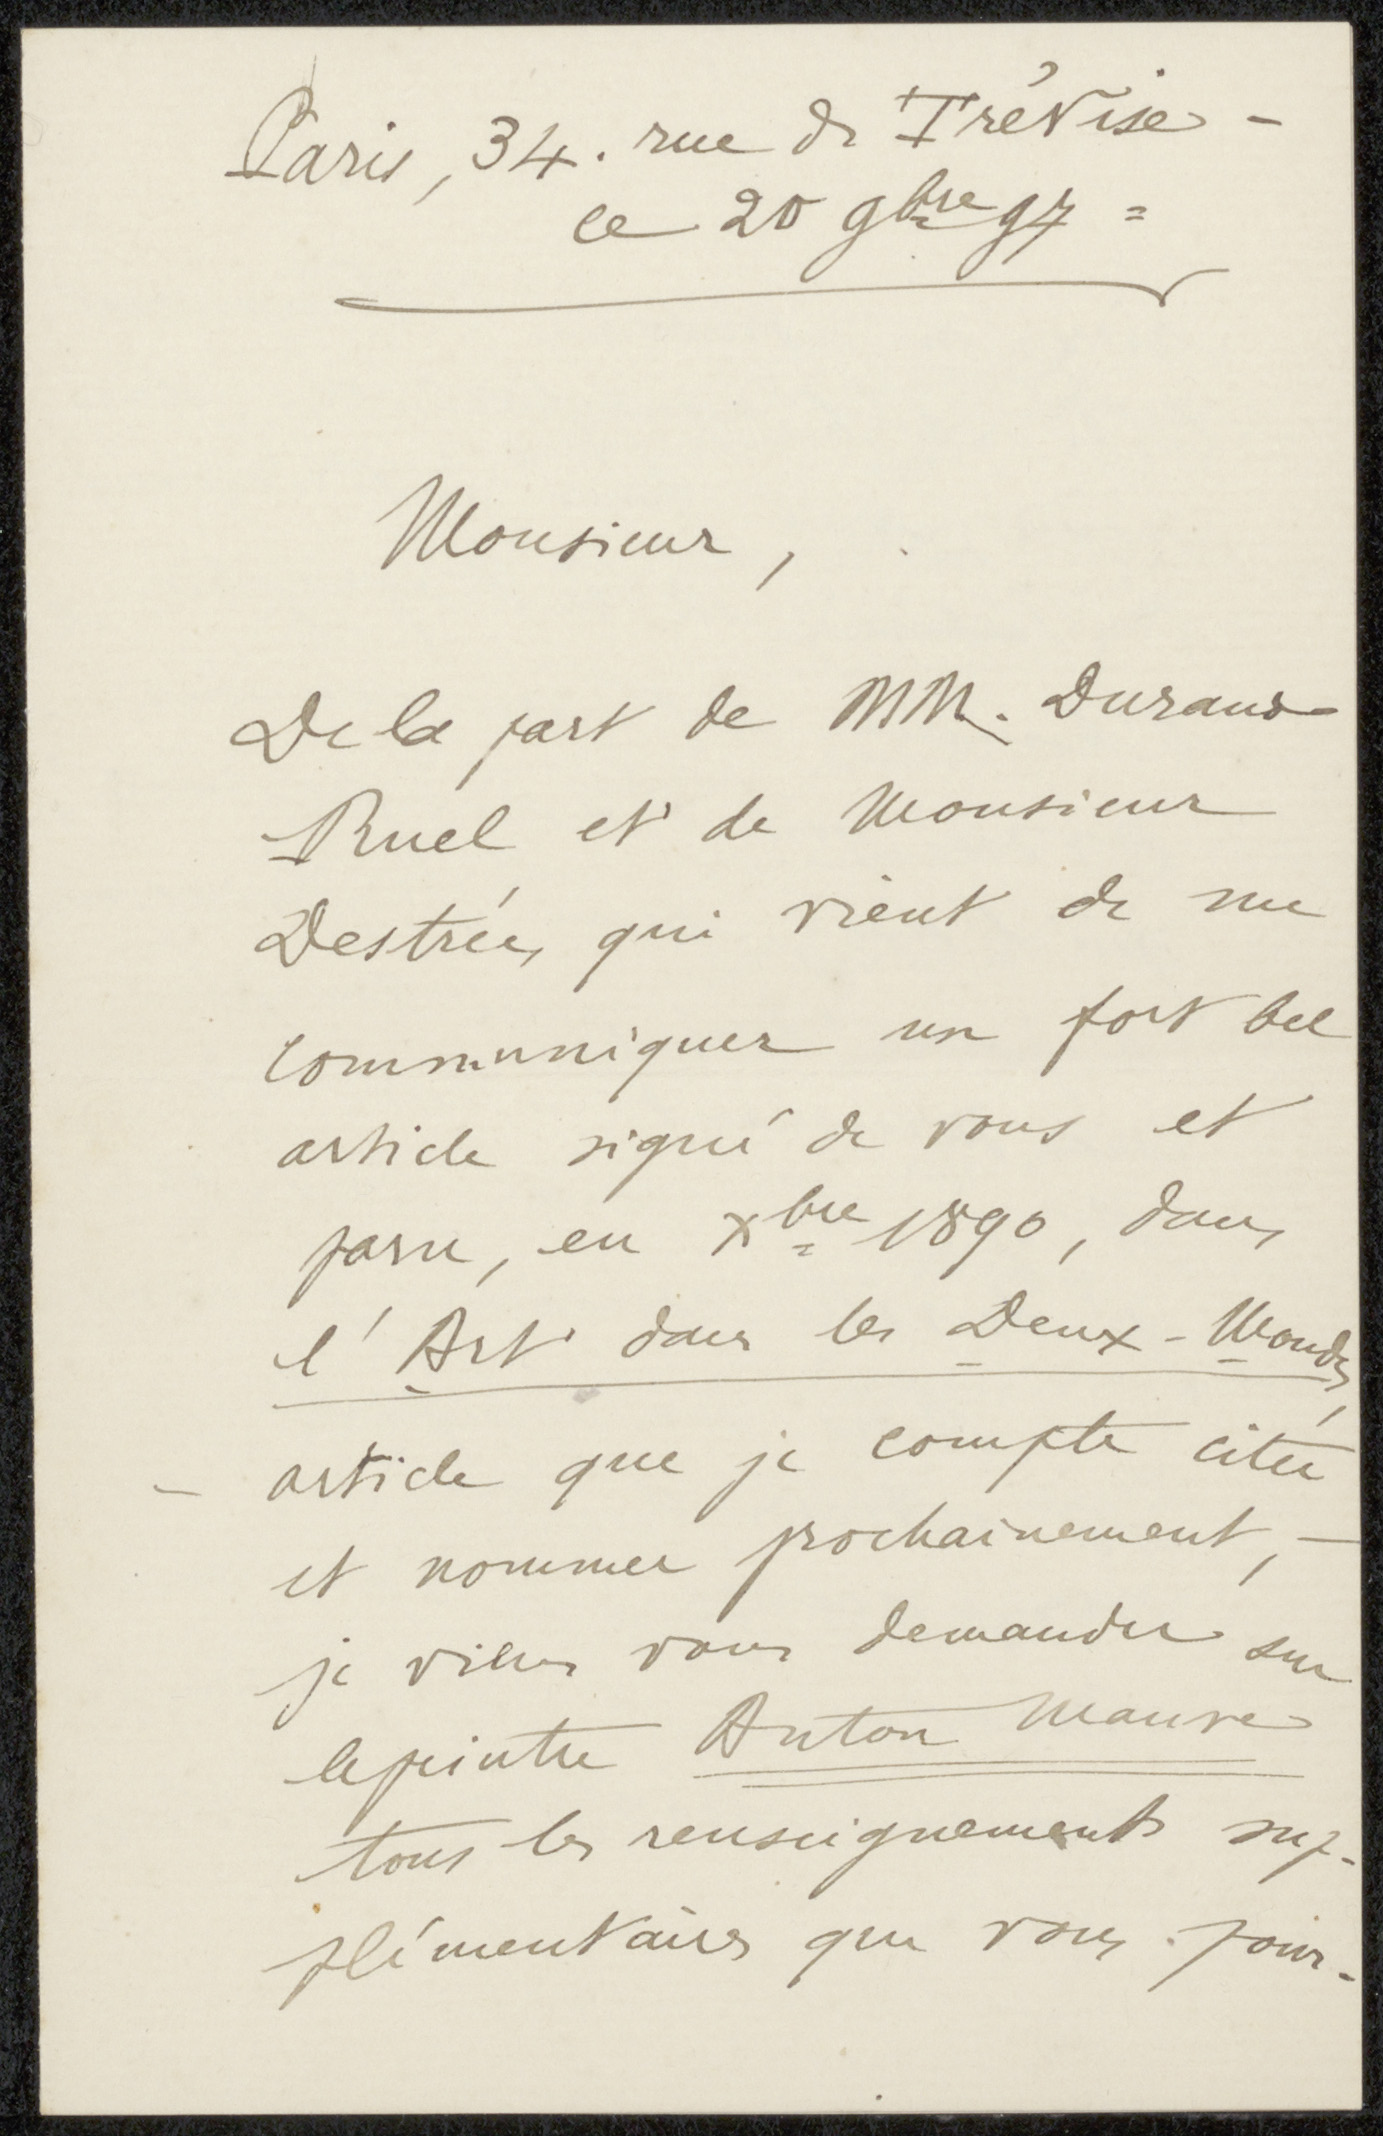 Paris, 34. rue de Trévise -
ce 20 9bre 97 =
Monsieur,
De la part de MM. Durand-
Ruel et de Monsieur
Destrée, qui vient de me
communiquer un fort bel
article signé de vous et
paru, en Xbre 1890, dans
l'Art dans les Deux-Mondes,
- article que je compte citer
et nommer prochainement, -
je viens vous demander sur
le peintre Anton Mauve
tous les renseignements sup-
plémentaires que vous pour-